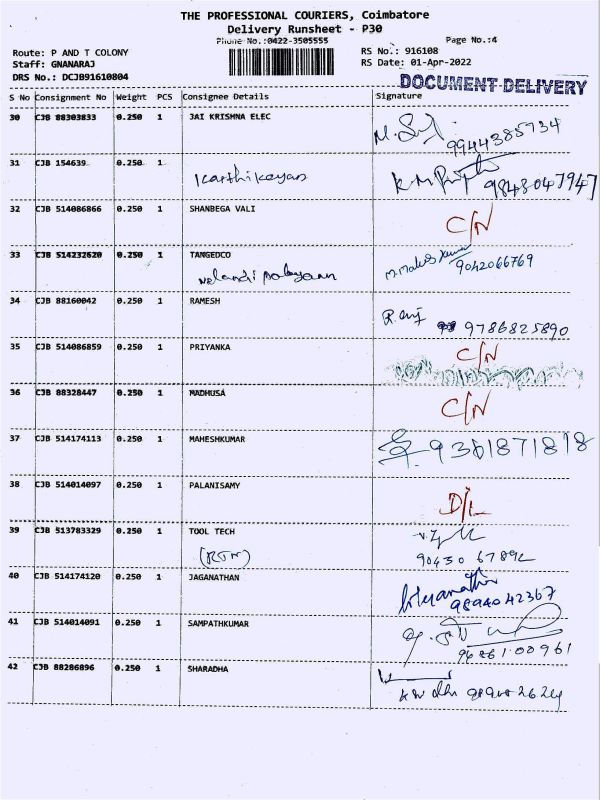 THE PROFESSIONAL COURIERS, Coimbatore
Delivery Runsheet - P30
Phone No.:0422-3505555
Page No.:4
Route: P AND T COLONY
RS No.: 916108
Staff: GNANARAJ
RS Date: 01-Apr-2022
DRS No.: DCJB91610804
DOCUMENT DELIVERY
S No Consignment No Weight PCS Consignee Details Signature
30 CJB 88303833 0.250 1 JAI KRISHNA ELEC
9944385734
31 CJB 154639 0.250 1
Karthikeyan
9843047947
32 CJB 514086866 0.250 1 SHANBEGA VALI C/N
33 CJB 514232620 0.250 1 TANGEDCO
9042066769
34 CJB 88160042 0.250 1 RAMESH
9786825890
35 CJB 514086859 0.250 1 PRIYANKA C/N
36 CJB 88328447 0.250 1 MADHUSA C/N
37 CJB 514174113 0.250 1 MAHESHKUMAR 9361871818
38 CJB 514014097 0.250 1 PALANISAMY D/L
39 CJB 513783329 0.250 1 TOOL TECH
(RTN) 90430 67892
40 CJB 514174120 0.250 1 JAGANATHAN
9894042367
41 CJB 514014091 0.250 1 SAMPATHKUMAR
42 CJB 88286896 0.250 1 SHARADHA